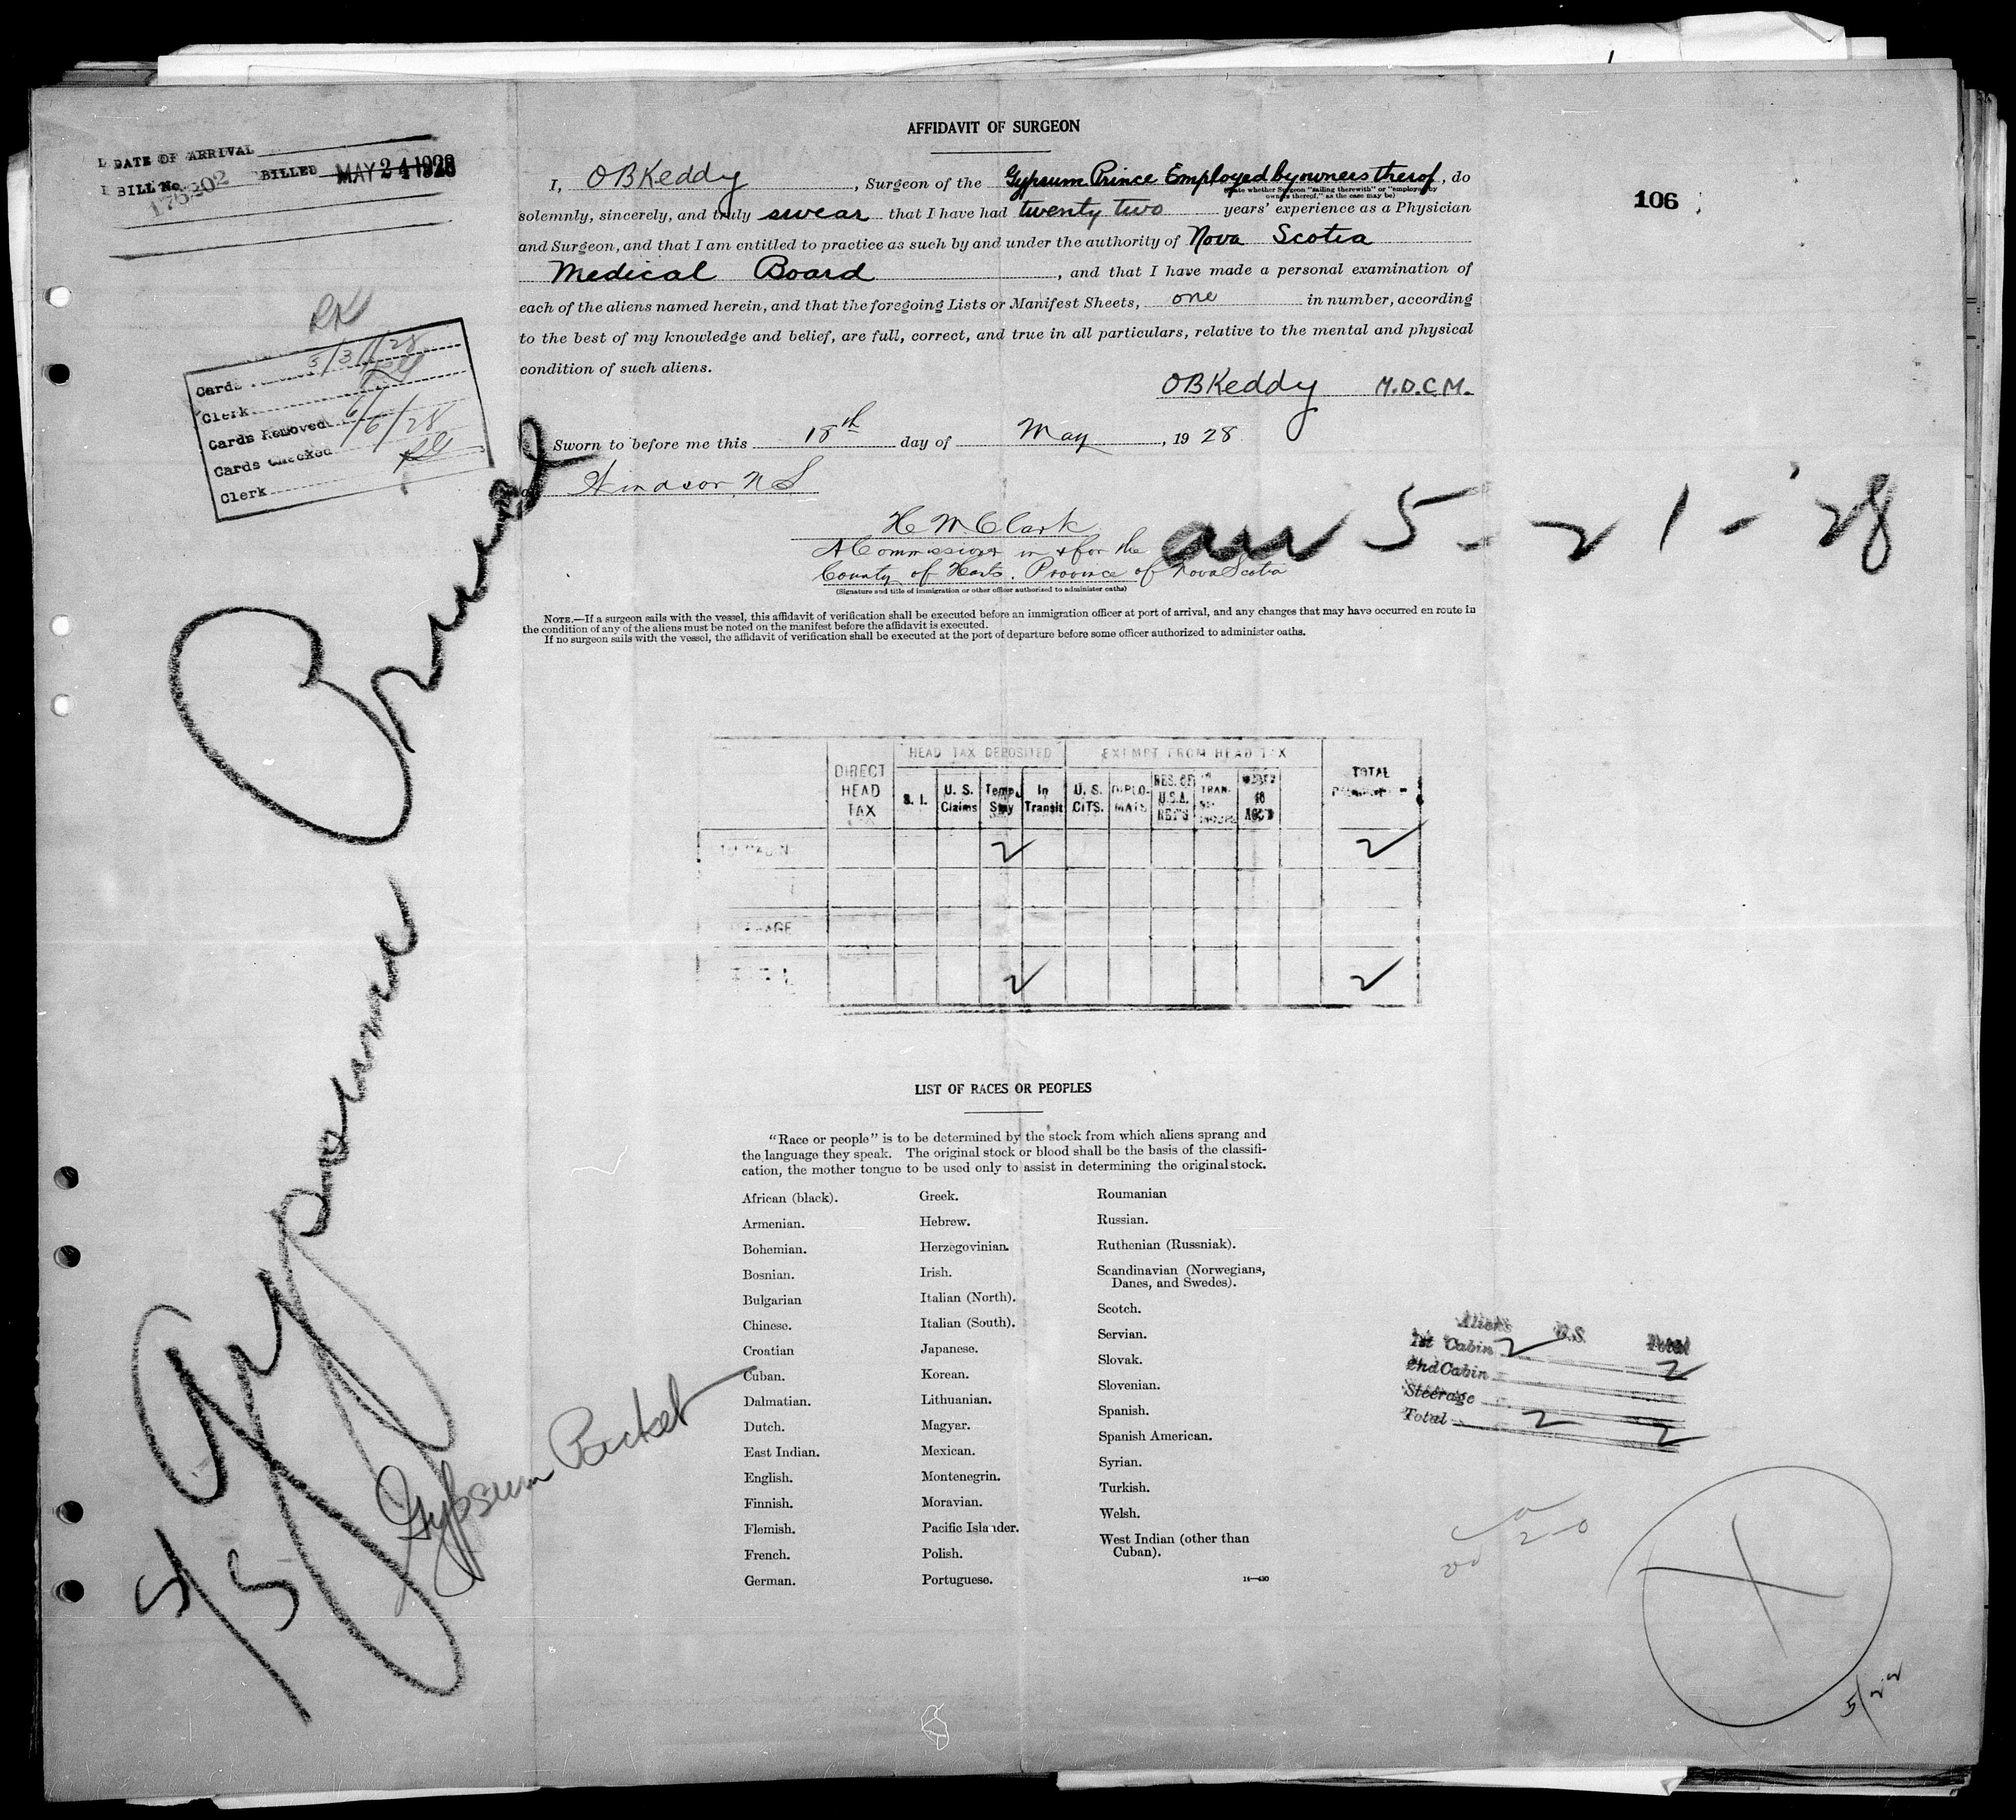 AFFIDAVIT OF SURGEON
DATE OF ARRIVAL
BILL No. 176202 BILLED MAY 24 1928
106
I, OBKeddy, Surgeon of the Gypsum Prince Employed by owners therof, do
(State whether Surgeon "sailing therewith" or "employed by
owners thereof," as the case may be)
solemnly, sincerely, and truly swear that I have had twenty two years' experience as a Physician
and Surgeon, and that I am entitled to practice as such by and under the authority of Nova Scotia
Medical Board, and that I have made a personal examination of
each of the aliens named herein, and that the foregoing Lists or Manifest Sheets, one in number, according
to the best of my knowledge and belief, are full, correct, and true in all particulars, relative to the mental and physical
condition of such aliens.
OBKeddy M.D.C.M.
Sworn to before me this 18th day of May, 1928
at Windsor, N S
H M Clark
A Commissioner in & for the
County of Hants. Province of Nova Scotia
(Signature and title of immigration or other officer authorized to administer oaths)
5-21-'28
NOTE.—If a surgeon sails with the vessel, this affidavit of verification shall be executed before an immigration officer at port of arrival, and any changes that may have occurred en route in
the condition of any of the aliens must be noted on the manifest before the affidavit is executed.
If no surgeon sails with the vessel, the affidavit of verification shall be executed at the port of departure before some officer authorized to administer oaths.
Cards 5/31/28
Clerk
Cards Removed 6/1
Cards Checked /6/28
Clerk
HEAD TAX DEPOSITED EXEMPT FROM HEAD TAX
DIRECT HEAD TAX S. I. U. S. Claims Temp. Stay In Transit U. S. CITS. DIPLOMATS RES. OF U.S.A. RET'G TRAN. UNDER 16 TOTAL
2 2
2 2
LIST OF RACES OR PEOPLES
"Race or people" is to be determined by the stock from which aliens sprang and
the language they speak. The original stock or blood shall be the basis of the classifi-
cation, the mother tongue to be used only to assist in determining the original stock.
African (black).
Armenian.
Bohemian.
Bosnian.
Bulgarian
Chinese.
Croatian
Cuban.
Dalmatian.
Dutch.
East Indian.
English.
Finnish.
Flemish.
French.
German.
Greek.
Hebrew.
Herzegovinian.
Irish.
Italian (North).
Italian (South).
Japanese.
Korean.
Lithuanian.
Magyar.
Mexican.
Montenegrin.
Moravian.
Pacific Islander.
Polish.
Portuguese.
Roumanian
Russian.
Ruthenian (Russniak).
Scandinavian (Norwegians,
Danes, and Swedes).
Scotch.
Servian.
Slovak.
Slovenian.
Spanish.
Spanish American.
Syrian.
Turkish.
Welsh.
West Indian (other than
Cuban).
14—430
Aliens U.S. Total
1st Cabin 2 2
2nd Cabin
Steerage
Total 2 2
Gypsum Prince
Gypsum Packet
5/5
2-0
5/22